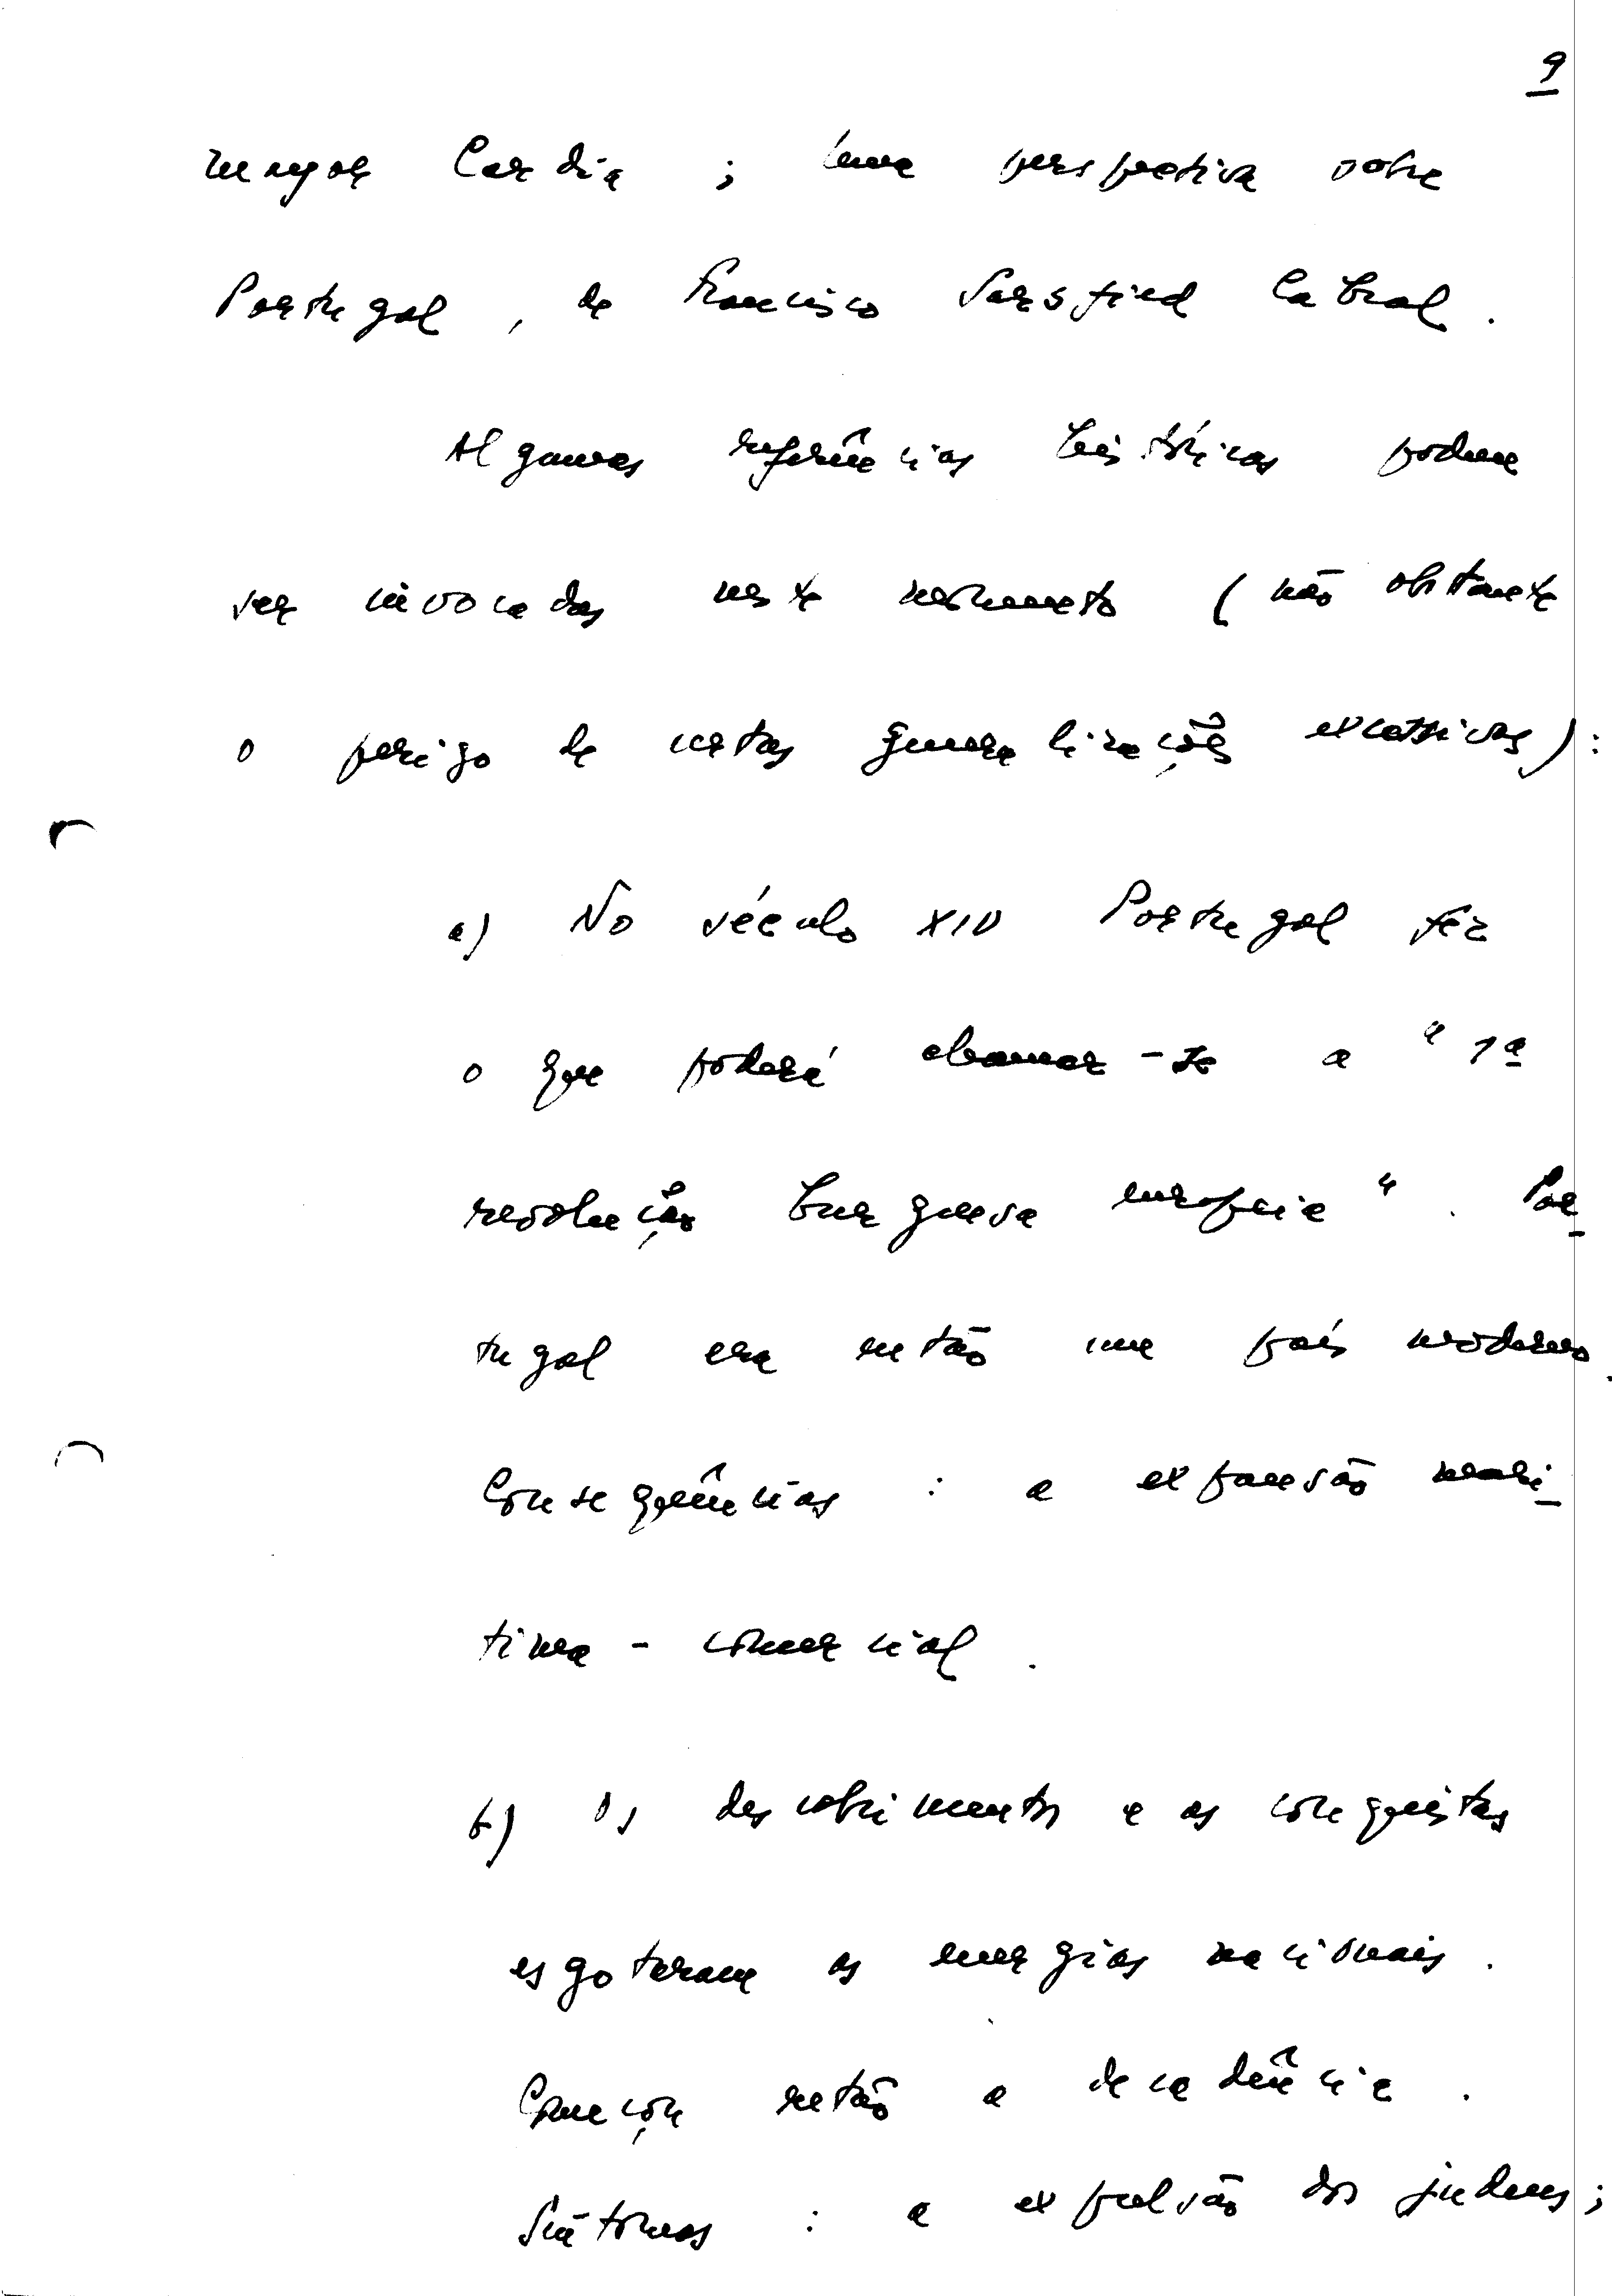 9
magoe Cardia ; uma perspectiva sobre
Portugal , de Francisco Sarsfied Cabral .
Algumas referências históricas podem
ser invocadas neste momento ( não obstante
o perigo de certas generalizações excessivas ) :
a) No século XIV Portugal fez
o que poderá chamar-se a " 1ª
revolução burguesa europeia " . Por-
tugal era então um país moderno .
Consequências : a expansão marí-
tima - comercial .
b) Os descobrimentos e as conquistas
esgotaram as energias nacionais .
Começou então a decadência .
Sintomas : a expulsão dos judeus ;